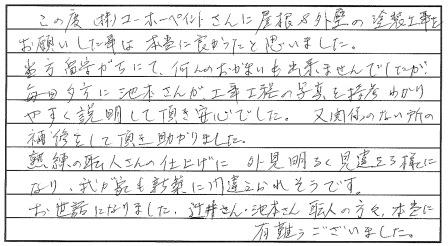 この度(株)ユーホーペイントさんに屋根&外壁の塗装工事を
お願いした事は本当に良かったと思いました。
当方留守がちにて、何んのおかまいも出来ませんでしたが、
毎日夕方に池本さんが工事工程の写真を持参わかり
やすく説明して頂き安心でした。又関係のない所の
補修をして頂き助かりました。
熟練の職人さんの仕上げに外見明るく見違える様に
なり、我が家も新築に間違えられそうです。
お世話になりました。辻井さん・池本さん職人の方々、本当に
有難うございました。